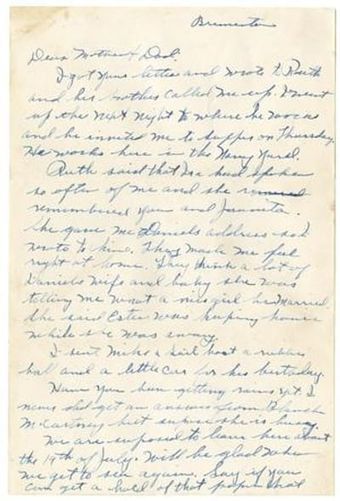 Bremerton
Dear Mother & Dad.
I got your letter and wrote to Ruth
and his brother called me up. I went
up the next night to where he was
and he invited me to supper on Thursday.
He works here in the Navy Yard.
Ruth said that had spoken
so often of me and she
remembered you and Juanita.
She gave me Daniels address so I
wrote to him. They made me feel
right at home. They think a lot of
Daniels wife and baby she was
telling me what a nice girl he married.
She said Ester was keeping house
while she was away.
I sent Mike a sail boat a rubber
bal and a little car for his birthday.
Have you been getting rains yet. I
never did get an answer from Blanche
McCartney but supose she is busy.
We are supposed to leave here about
the 19th of July. Will be glad when
we get to sea again. Say if you
can get a hold of that paper that